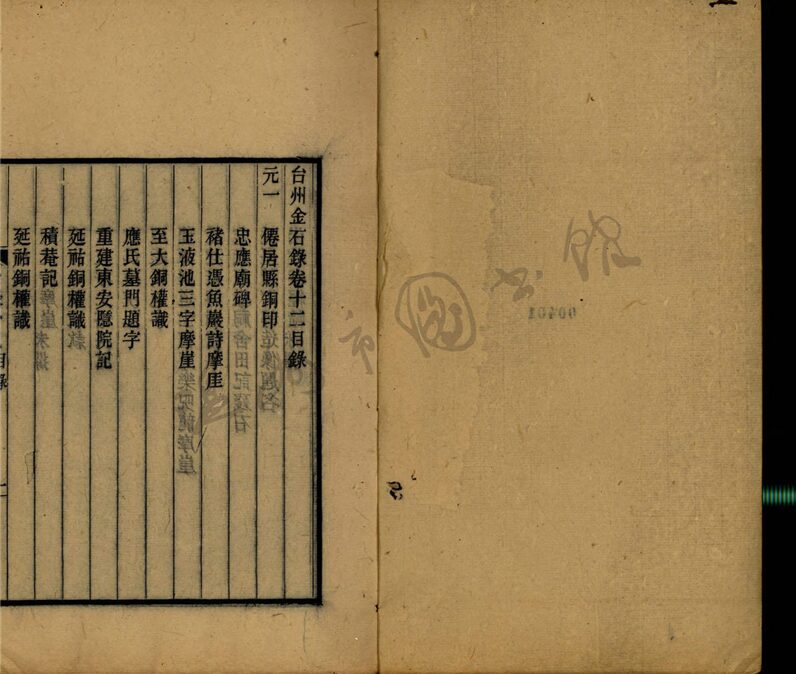 台州金石錄卷十二目錄
元一
僊居縣銅印
忠應廟碑
褚仕憑魚巖詩摩厓
玉液池三字摩崖
至大銅權識
應氏墓門題字
重建東安隱院記
延祐銅權識
積菴記
延祐銅權識